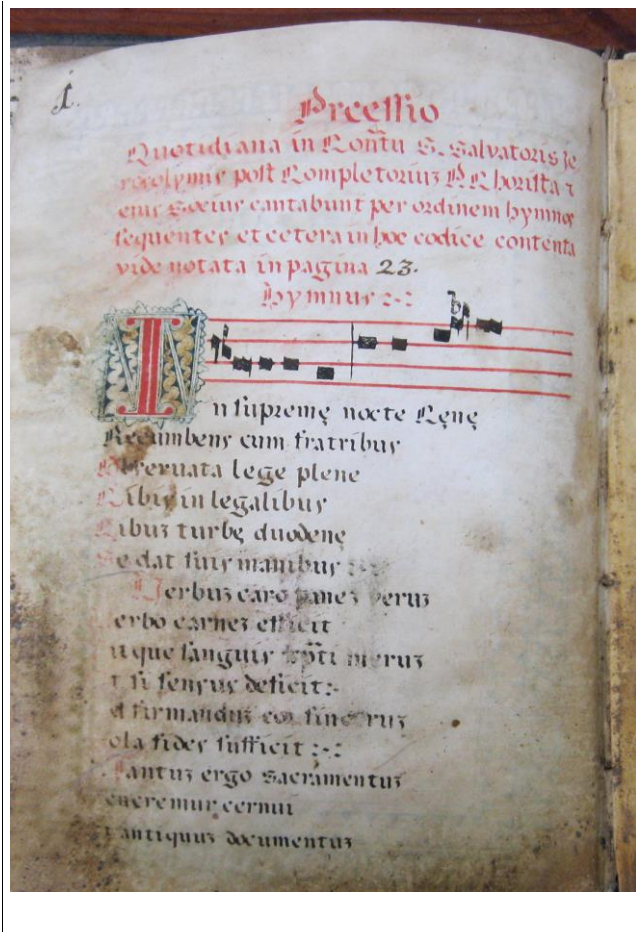 1.
Prcessio
Quotidiana in Conṽtu S. Salvatoris Je
rosolymis post Completoriuz P P. horista τ
eius Socius cantabunt per ordinem hymnos
sequentes et cetera in hoc codice contenta
vide notata in pagina 23.
hymnus :-:
In supremę nocte Cęnę
Recumbens cum fratribus
Observata lege plene
Cibis in legalibus
Cibuz turbę duodenę
Se dat suis manibus :-:
Verbuz caro panez veruz
verbo carnez efficit
itque sanguis xp̃ti meruz
t si sensus deficit:-
d firmanduz cor sinceruz
ola fides sufficit :-:
Tantuz ergo Sacramentuz
eneremur cernui
t antiquuz documentuz